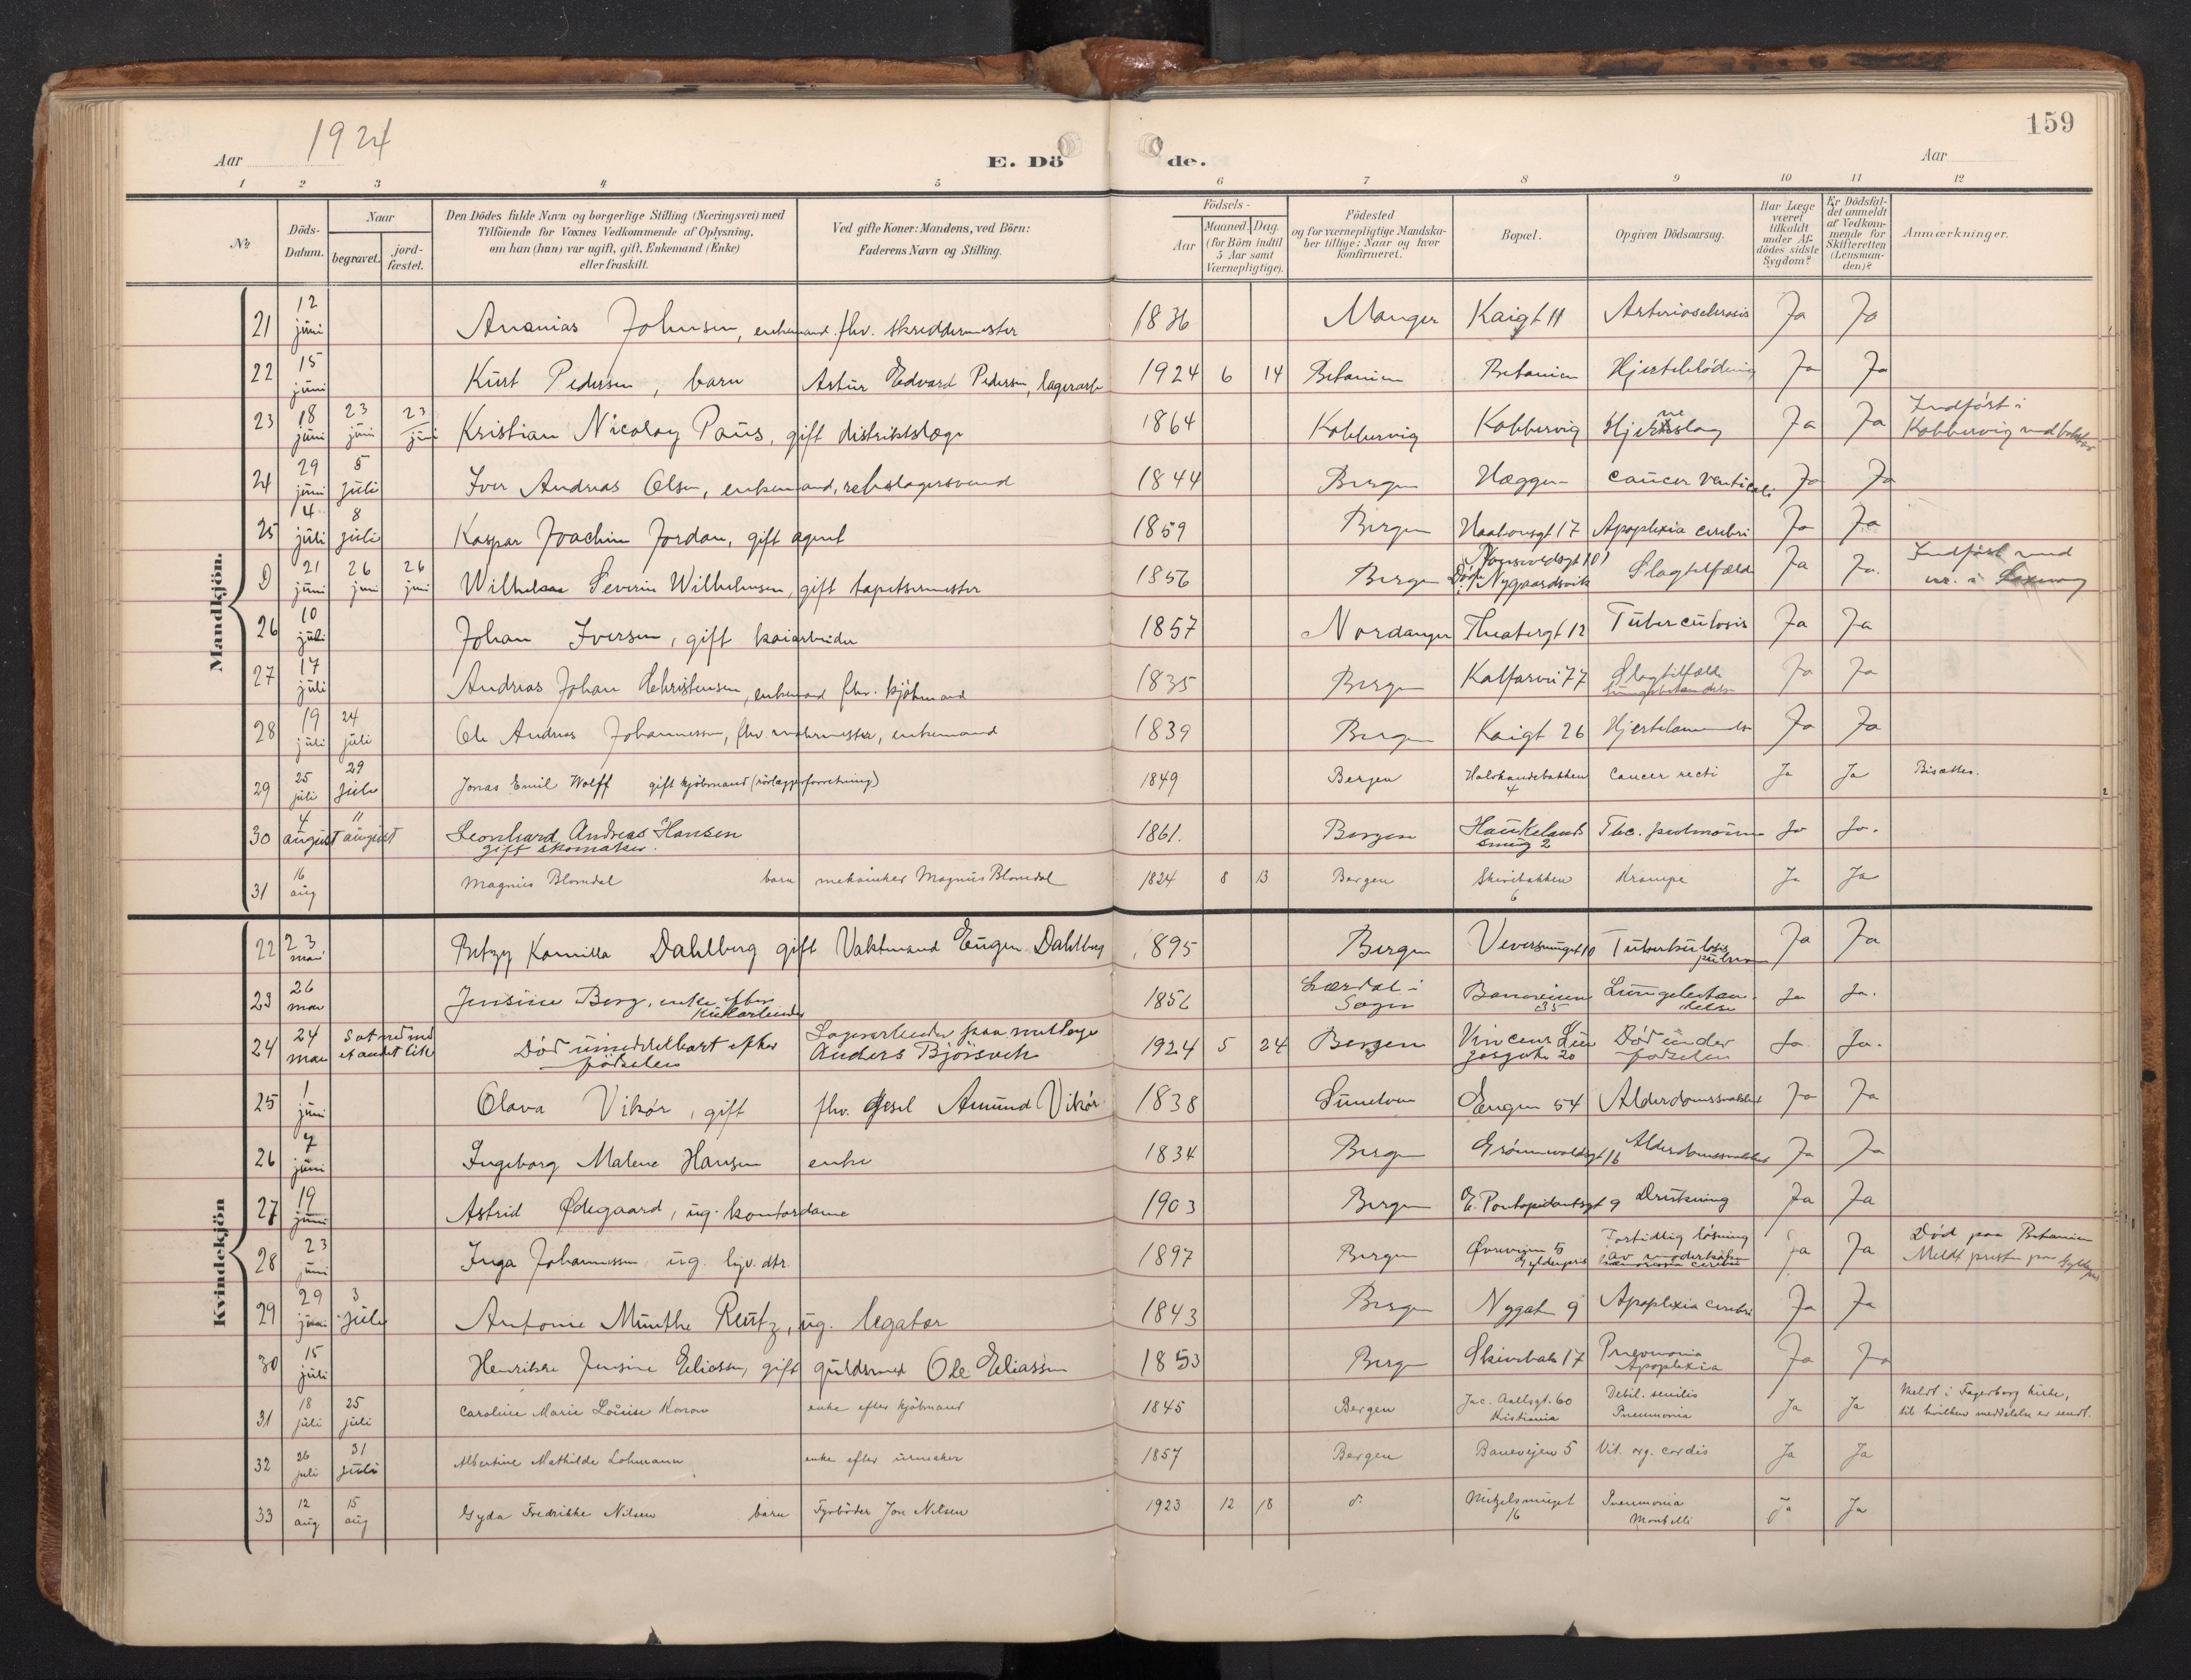 159
Aar 1924
E. Döde.
Aar
1 2 3 4 5 6 7 8 9 10 11 12
No.
Döds-Datum.
Naar
begravet.
jord-fæstet.
Den Dödes fulde Navn og borgerlige Stilling (Næringsvei) med
Tilföiende for Voxnes Vedkommende af Oplysning,
om han (hun) var ugift, gift, Enkemand (Enke)
eller fraskilt.
Ved gifte Koner: Mandens, ved Börn:
Faderens Navn og Stilling.
Födsels-
Aar
Maaned. Dag.
(for Börn indtil
5 Aar samt
Værnepligtige).
Födested
og for værnepligtige Mandska-
ber tillige: Naar og hvor
konfirmeret.
Bopæl.
Opgiven Dödsaarsag.
Har Læge
været
tilkaldt
under Af-
dödes sidste
Sygdom?
Er Dödsfal-
det anmeldt
af Vedkom-
mende for
Skifteretten
(Lensman-
den)?
Anmærkninger.
Mandkjön.
21 12 juni Ananias Johnsen, enkemand fhv. skreddermester 1836 Manger Kaigt 11 Arteriosclerosis Ja Ja
22 15 juni Kurt Pedersen, barn Artur Edvard Pedersen, lagerarb 1924 6 14 Betanien Betanien Hjerteblödning Ja Ja
23 18 juni 23 juni 23 juni Kristian Nicolay Paus, gift distriktslæge 1864 Kobbervig Kobbervig Hjerneslag Ja Ja Indført i Kobbervig
24 29 juni 5 juli Iver Andreas Olsen, enkemand, rebslagersvend 1844 Bergen Hæggen Cancer ventriculi Ja Ja
25 4 juli 8 juli Kaspar Joachim Jordan, gift agent 1859 Bergen Haakonsgt 17 Apoplexia cerebri Ja Ja
0 21 juni 26 juni 26 juni Severin Wilhelmsen, gift tapetsermester 1856 Bergen Død i Nygaardsvik Slagtilfælde Ja Ja. Indført med nr. i
26 10 juli Johan Iversen, gift kaiarbeider 1857 Nordanger Theatergt 12 Tuberculosis Ja Ja
27 17 juli Andreas Johan Christensen, enkemand fhv. kjøbmand 1835 Bergen Kalfarvei 77 Slagtilfælde Lungebetændelse Ja Ja
28 19 juli 24 juli Ole Andreas Johannessen, fhv. enkemand 1839 Bergen Kaigt 26 Hjertelammelse Ja Ja
29 25 juli 29 juli Jonas Emil Wolff gift kjøbmand (rörlæggerforretning) 1849 Bergen Halvkandebakken 4 Cancer recti Ja Ja Bisættes.
30 4 august 11 august Leonhard Andreas Hansen gift skomaker. 1861. Bergen Haukelands smug 2 Tbc. pulmonum Ja Ja.
31 16 aug Magnus Blomdal barn mekaniker Magnus Blomdal 1824 8 13 Bergen Skivebakken 6 Krampe Ja Ja
Kvindekjön
22 23 mai Betzy Kamilla Dahlberg gift Vaktmand Eugen Dahlberg 1895 Bergen Veversmuget 10 Tuberkulosis pulm Ja Ja
23 26 mai Jensine Berg, enke efter kullarbeider 1856 Lærdal i Sogn Baneveien 35 Lungebetændelse Ja Ja.
24 24 mai Sat ned med et andet lik Død umiddelbart efter fødselen Lagerarbeider Anders Bjørsvik 1924 5 24 Bergen Vincens Lungesgate 20 Død under fødselen Ja Ja.
25 1 juni Olava Vikør, gift fhv. Amund Vikør 1838 Sunelven Engen 54 Alderdomssvakhet Ja Ja
26 7 juni Ingeborg Malene Hansen enke 1834 Bergen Grønnevoldsgt 16 Alderdomssvakhet Ja Ja
27 19 juni Astrid Ødegaard, ug. kontordame 1903 Bergen E. Pontopidantsgt 9 Drukning Ja Ja
28 23 juni Inga Johannessen ug. hjv. dtr. 1897 Bergen Øvreveien 5 Gyldenpris Fortidlig løsning av moderkaken Ja Ja Død paa Betanien Meldt presten paa Gyldenpris
29 29 juni 3 juli Antonie Munthe Reutz, ug. legatar 1843 Bergen Nygaten 9 Apoplexia cerebri Ja Ja
30 15 juli Henrikke Jensine Eliassen, gift guldsmed Ole Eliassen 1853 Bergen Skivebak 17 Pneumonia Apoplexia Ja Ja
31 18 juli 25 juli Caroline Marie Louise Konow enke efter kjöbmand 1845 Bergen Jac. Aallsgt. 60 Kristiania Debil. senilis Pneumonia Ja Ja Meldt i Fagerborg kirke, til hvilken meddelelse er sendt.
32 26 juli 31 juli Albertine Mathilde Lohmann enke efter urmaker 1857 Bergen Baneveien 5 Vit. org. cordis Ja Ja
33 12 aug 15 aug Gyda Fredrikke Nilsen barn Fyrböder Jon Nilsen 1923 12 18 d: Nitzelsmuget 16 Pneumonia Morbilli Ja Ja